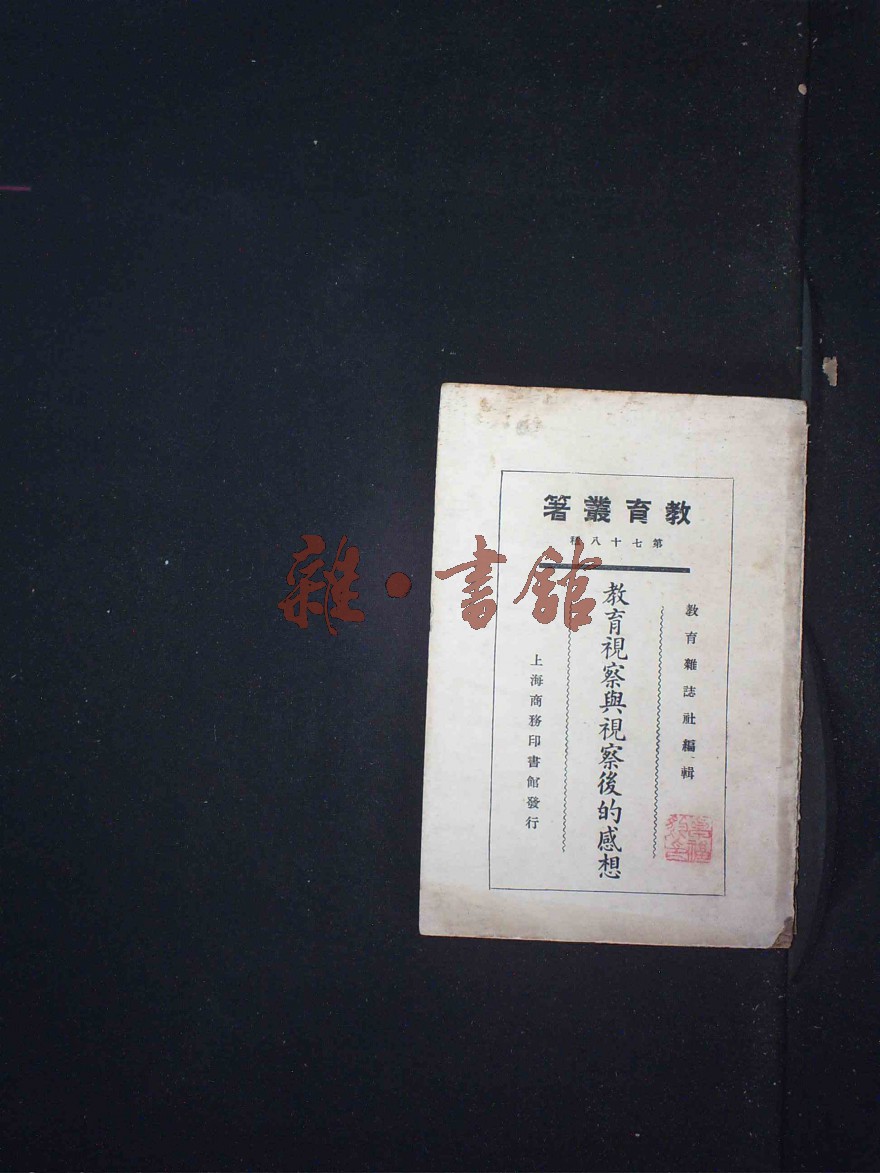 教育叢著
第七十八種
教育雜誌社編輯
教育視察與視察後的感想
上海商務印書館發行
雜·書館